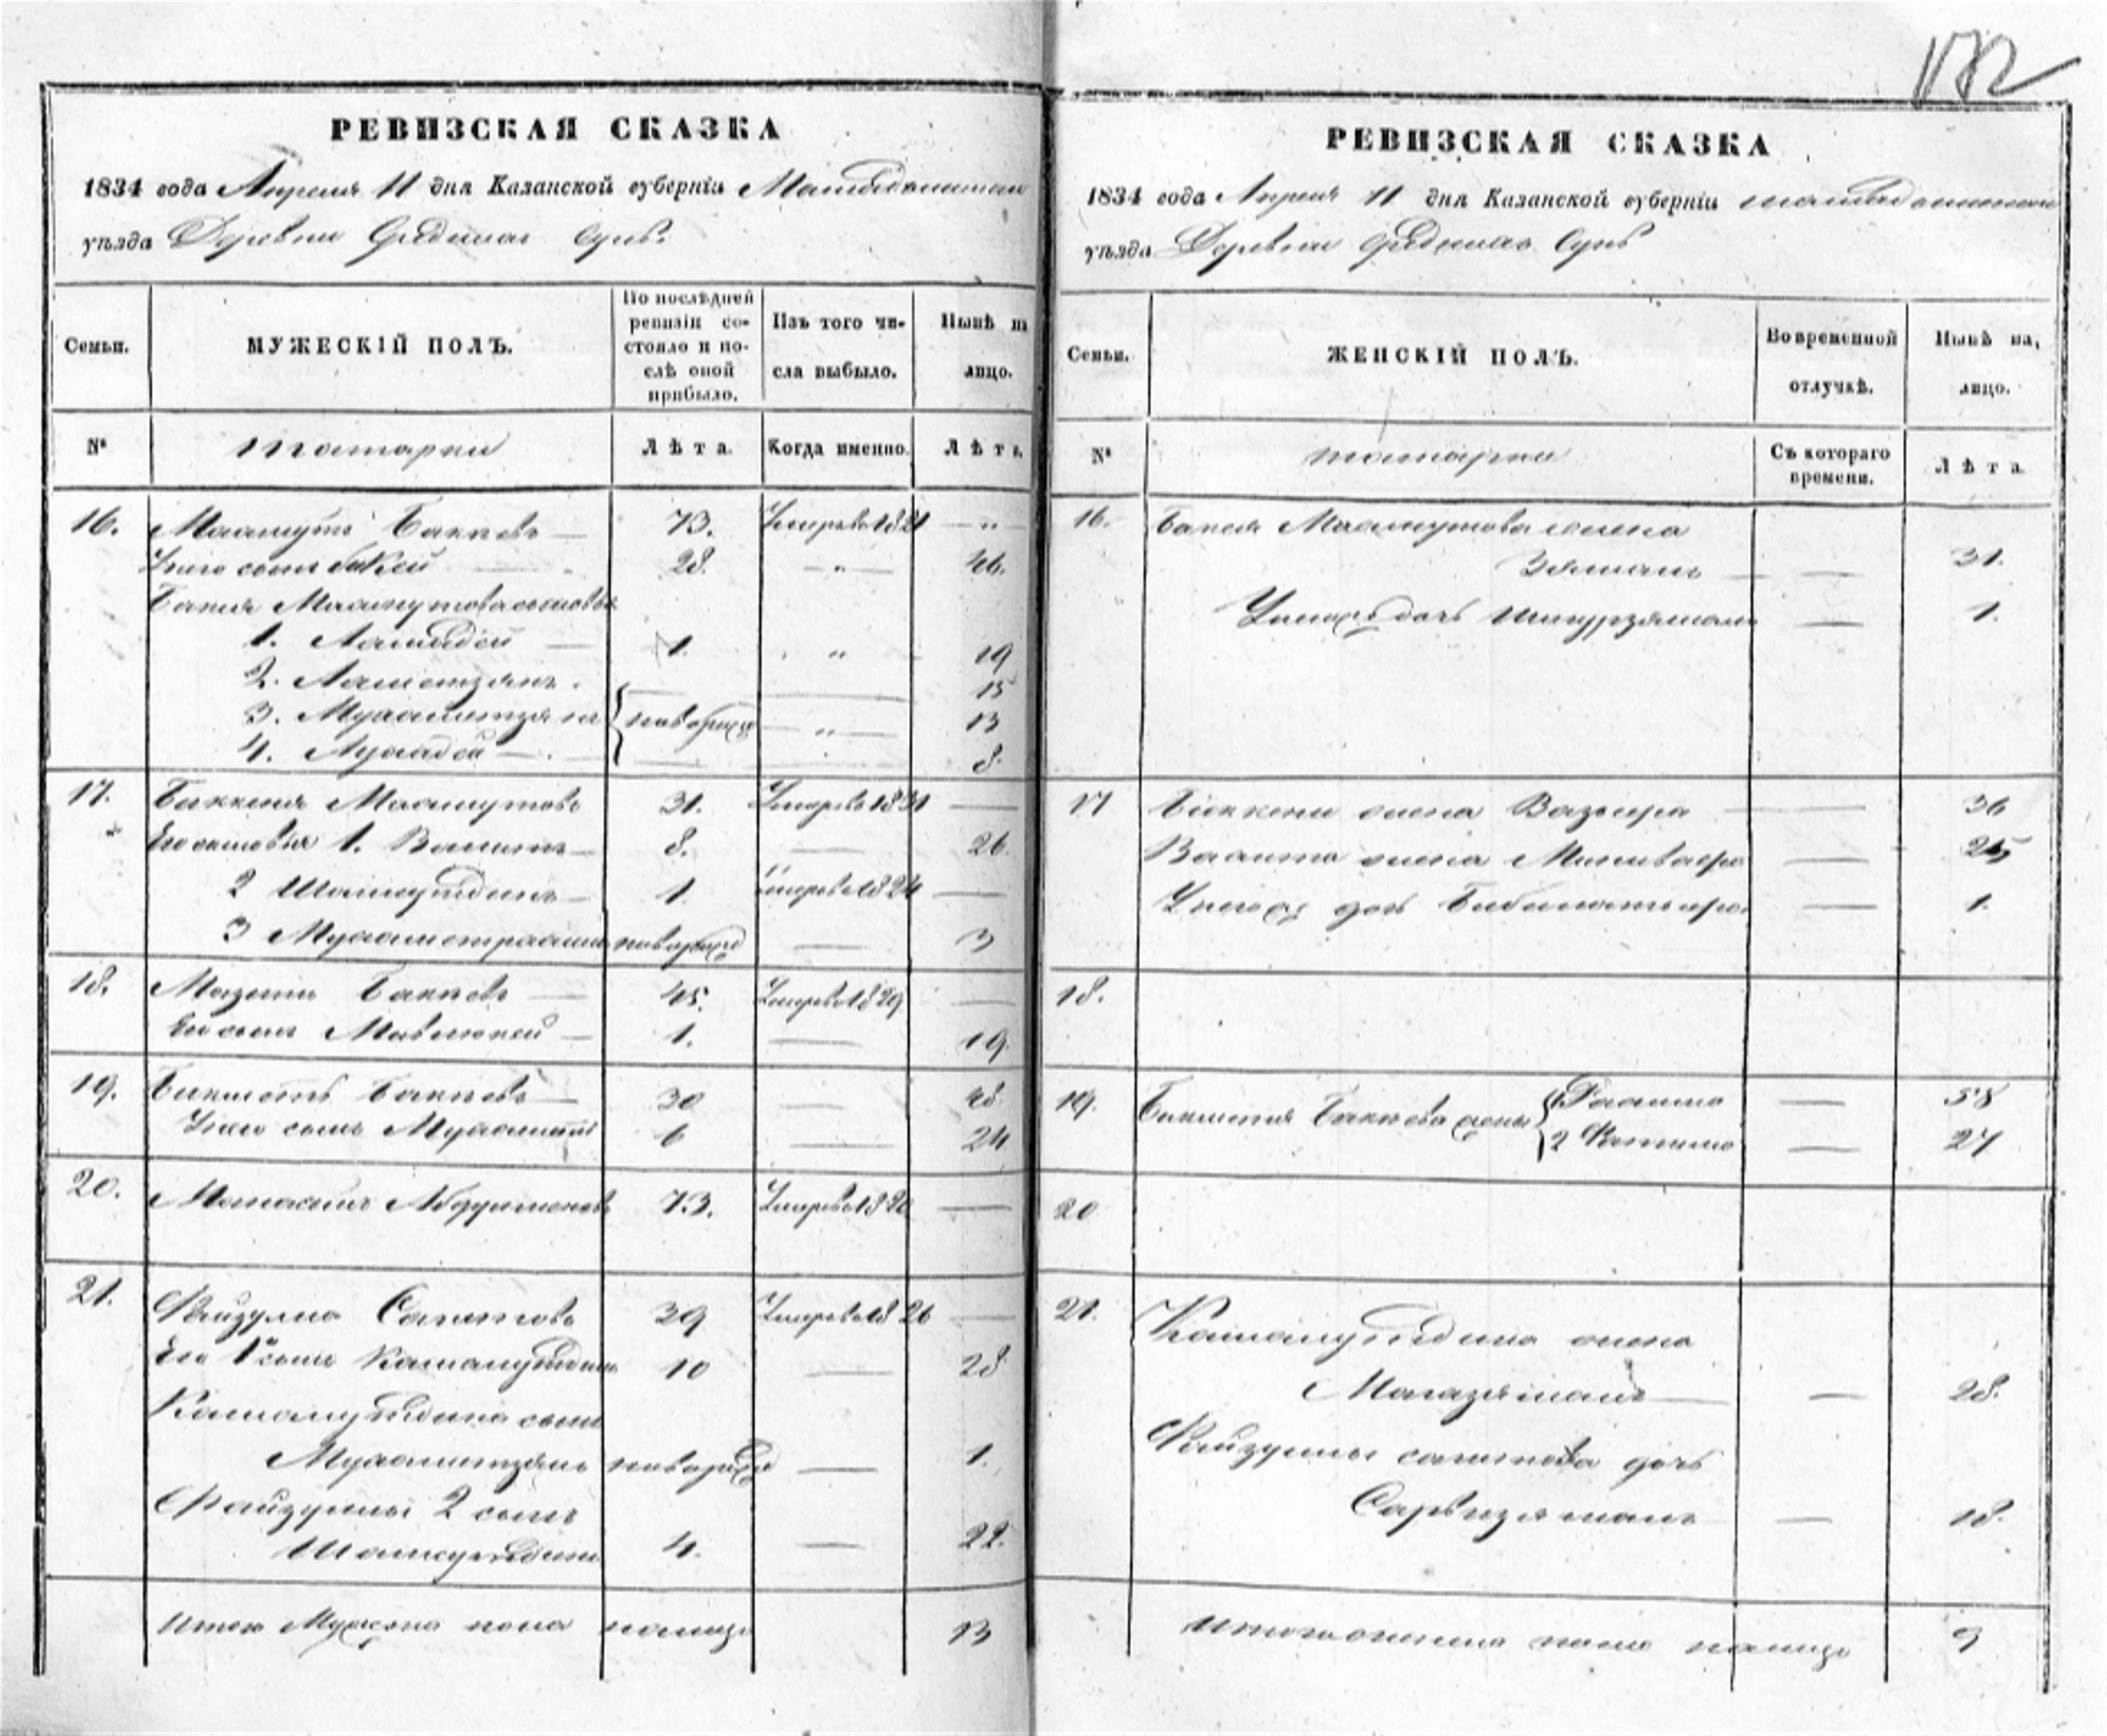 172
РЕВИЗСКАЯ СКАЗКА
1834 года Апреля 11 дня Казанской губерніи Мамадышскаго
уѣзда Деревни Средних Сунь.
Семьи.
МУЖЕСКІЙ ПОЛЪ.
По послѣдней ревизіи состояло и послѣ оной прибыло.
Изъ того числа выбыло.
Нынѣ на лицо.
№
татары
Лѣта.
Когда именно.
Лѣта.
16. Маамутъ Бакковъ — 73. Умеръ въ 1821 — „
У него сынъ Бакей 28. — „ — 46.
Бакея Маамутова сыновья
1. — 1. „ 19
2. 15
3. Мухаметзянъ новорожд — „ — 13
4. 8.
17. Биккеня Маамутовъ 31. Умеръ въ 1831 —
Его сыновья 1. Ваитъ — 8. — 26.
2 Шамсутдинъ — 1. Умеръ въ 1824 —
3 Мухаметрахим новорожд — 3
18. Мазитъ Бакковъ — 45. Умеръ въ 1829 —
Его сынъ Мавлюкей — 1. — 19.
19. Бикметь Бакковъ — 30 — 48
У него сынъ 6 — 24
20. Абдряшевъ 73. Умеръ въ 1820 —
21. Файзулла Сагитовъ 39 Умеръ въ 1826 —
Его 1й сынъ Камалутдинъ 10 — 28
Камалутдина сынъ
Мухаметзянъ новорожд — 1.
Файзуллы 2 сынъ
Шамсутдинъ 4. — 22.
Итого Мужска пола налицо 13
РЕВИЗСКАЯ СКАЗКА
1834 года Апреля 11 дня Казанской губерніи мамадышскаго
уѣзда Деревни Средних Сунь
Семьи.
ЖЕНСКІЙ ПОЛЪ.
Во временной отлучкѣ.
Нынѣ на, лицо.
№
татарки
Съ котораго времени.
Лѣта
16. Бакея Маамутова жена
Зямалъ — — 31.
У него дочь — 1.
17 Биккени жена Вазыера — 36
Ваита жена — 25
У него дочь — 1.
18.
19. Бикметя Баккова жены 1 Рахима — 58
2 Фатима — 27
20
21. Камалутдина жена
— 28.
Файзуллы сагитова дочь
— 18.
Итого женска пола налицо 9